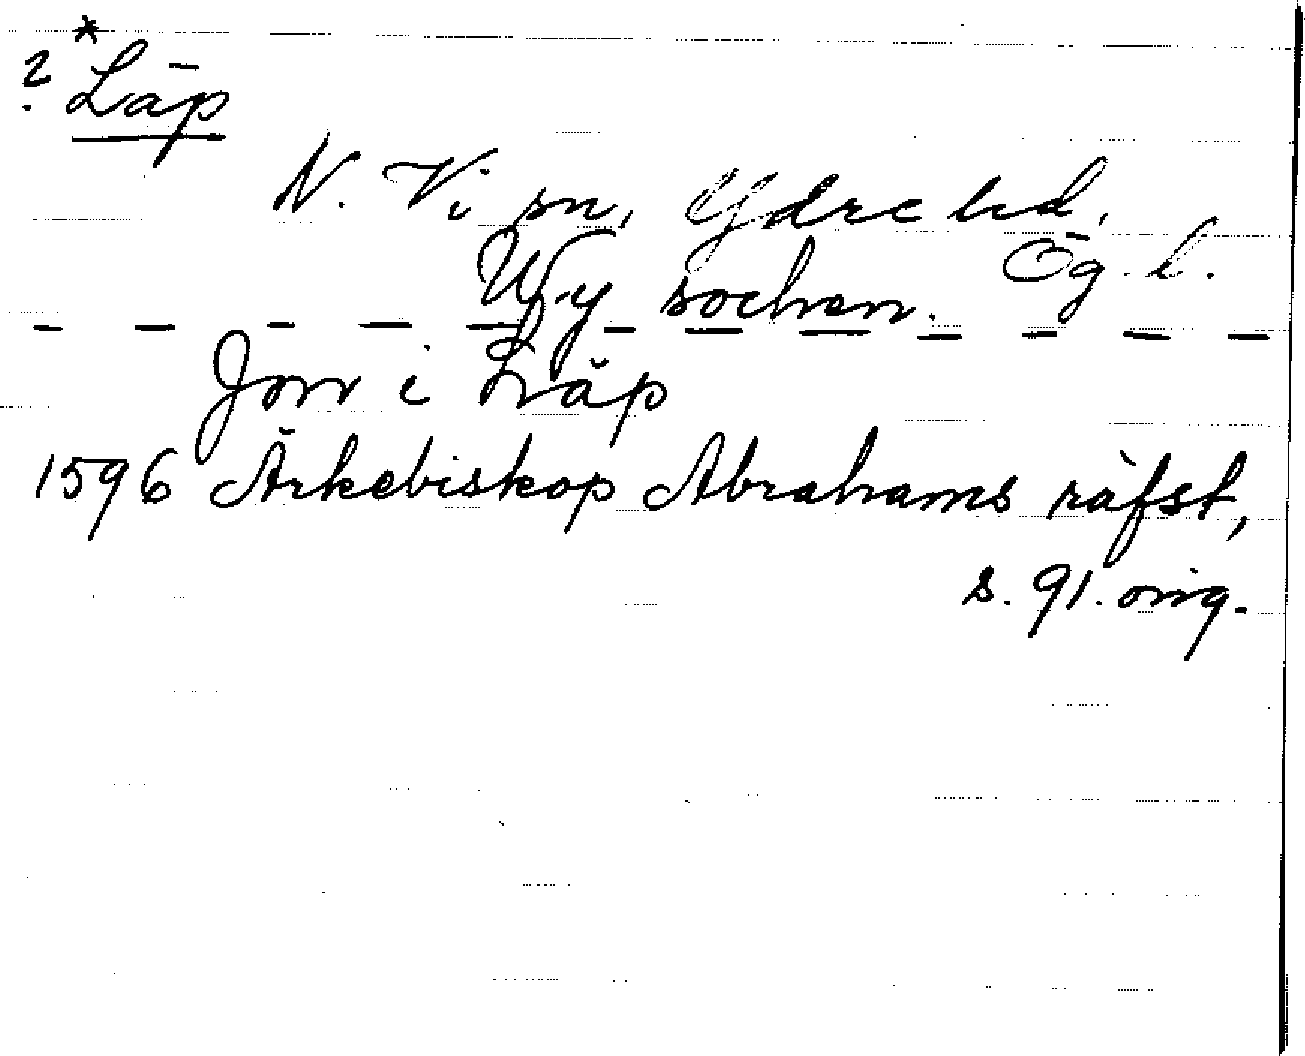 ? * Läp
N. Vi sn, Ydre hd,
Ög. l.
Wy sochen.
Jon i Läp
1596 Ärkebiskop Abrahams räfst,
s. 91. orig.